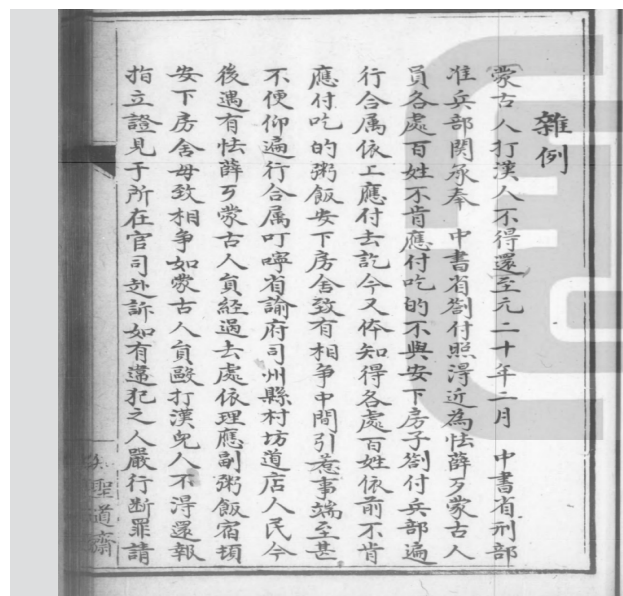 雜例
蒙古人打漢人不得還至元二十年二月 中書省刑部
准兵部関承奉 中書省劄付照得近為怯薛歹蒙古人
員各處百姓不肯應付吃的不與安下房子劄付兵部遍
行合属依上應付去訖今又体知得各處百姓依前不肯
應付吃的粥飯安下房舍致有相争中間引惹事端至甚
不便仰遍行合属叮嚀省諭府司州縣村坊道店人民今
後遇有怯薛歹蒙古人員経過去處依理應副粥飯宿頓
安下房舍毋致相争如蒙古人員毆打漢兒人不得還報
指立證見于所在官司赴訴如有違犯之人嚴行断罪請
聖道齋